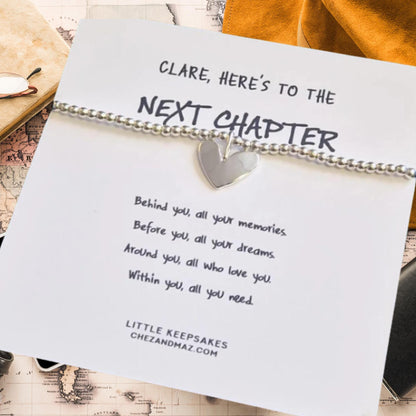 CLARE, HERE'S TO THE
NEXT CHAPTER
Behind you, all your memories.
Before you, all your dreams.
Around you, all who love you.
Within you, all you need.
LITTLE KEEPSAKES
CHEZANDMAZ.COM